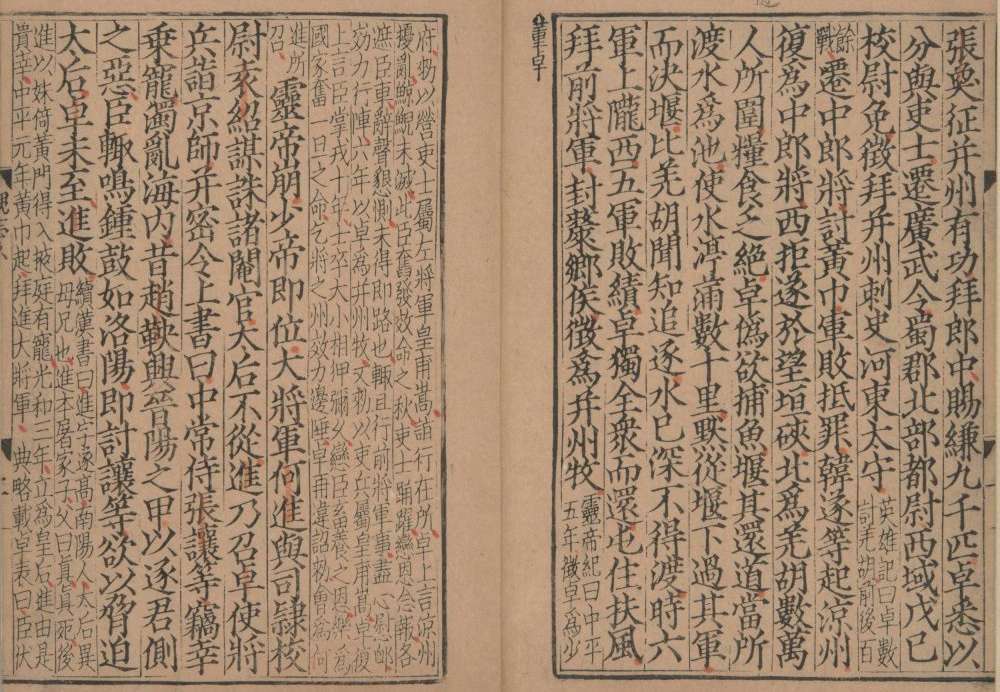 董卓
張奐征并州有功拜郎中賜縑九千匹卓悉以
分與吏士遷廣武令蜀郡北部都尉西域戊己
校尉免徵拜并州刺史河東太守
英雄記曰卓數
討羌胡前後百
餘
戰
遷中郎將討黃巾軍敗抵罪韓遂等起涼州
復為中郎將西拒遂於望垣硤北為羌胡數萬
人所圍糧食乏絕卓偽欲捕魚堰其還道當所
渡水為池使水渟滿數十里默從堰下過其軍
而決堰比羌胡聞知追逐水已深不得渡時六
軍上隴西五軍敗績卓獨全衆而還屯住扶風
拜前將軍封斄鄉侯徵為并州牧
靈帝紀曰中平
五年徵卓為少
府勑以營吏士屬左將軍皇甫嵩詣行在所卓上言涼州
擾亂鯨鯢未滅此臣奮發效命之秋吏士踊躍戀恩念報各
遮臣車辭聲懇惻未得即路也輒且行前將軍事盡心慰卹
効力行陣六年以卓為并州牧又勑以吏兵屬皇甫嵩卓復
上言臣掌戎十年士卒大小相狎彌久戀臣畜養之恩樂為
國家奮一日之命乞將之州效力邊陲卓再違詔勑會為何
進所
召
靈帝崩少帝即位大將軍何進與司隸校
尉袁紹謀誅諸閹官太后不從進乃召卓使將
兵詣京師并密令上書曰中常侍張讓等竊幸
乘寵濁亂海內昔趙鞅興晉陽之甲以逐君側
之惡臣輒鳴鍾鼓如洛陽即討讓等欲以脅迫
太后卓未至進敗
續漢書曰進字遂高南陽人太后異
母兄也進本屠家子父曰真真死後
進以妹倚黃門得入掖庭有寵光和三年立為皇后進由是
貴幸中平元年黃巾起拜進大將軍 典略載卓表曰臣伏